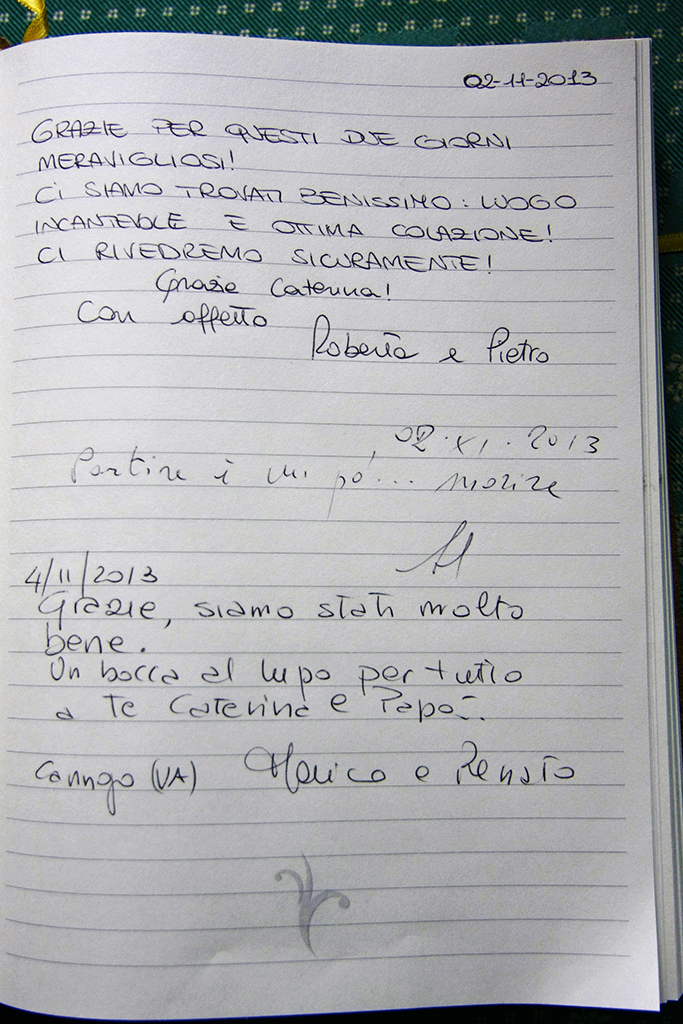 02-11-2013
GRAZIE PER QUESTI DUE GIORNI
MERAVIGLIOSI!
CI SIAMO TROVATI BENISSIMO: LUOGO
INCANTEVOLE E OTTIMA COLAZIONE!
CI RIVEDREMO SICURAMENTE!
Grazie Caterina!
Con affetto
Roberta e Pietro
02.XI.2013
Partire è un pò... morire
4/11/2013
Grazie, siamo stati molto
bene.
Un bocca al lupo per tutto
a te Caterina e Papà.
(VA) e Renato